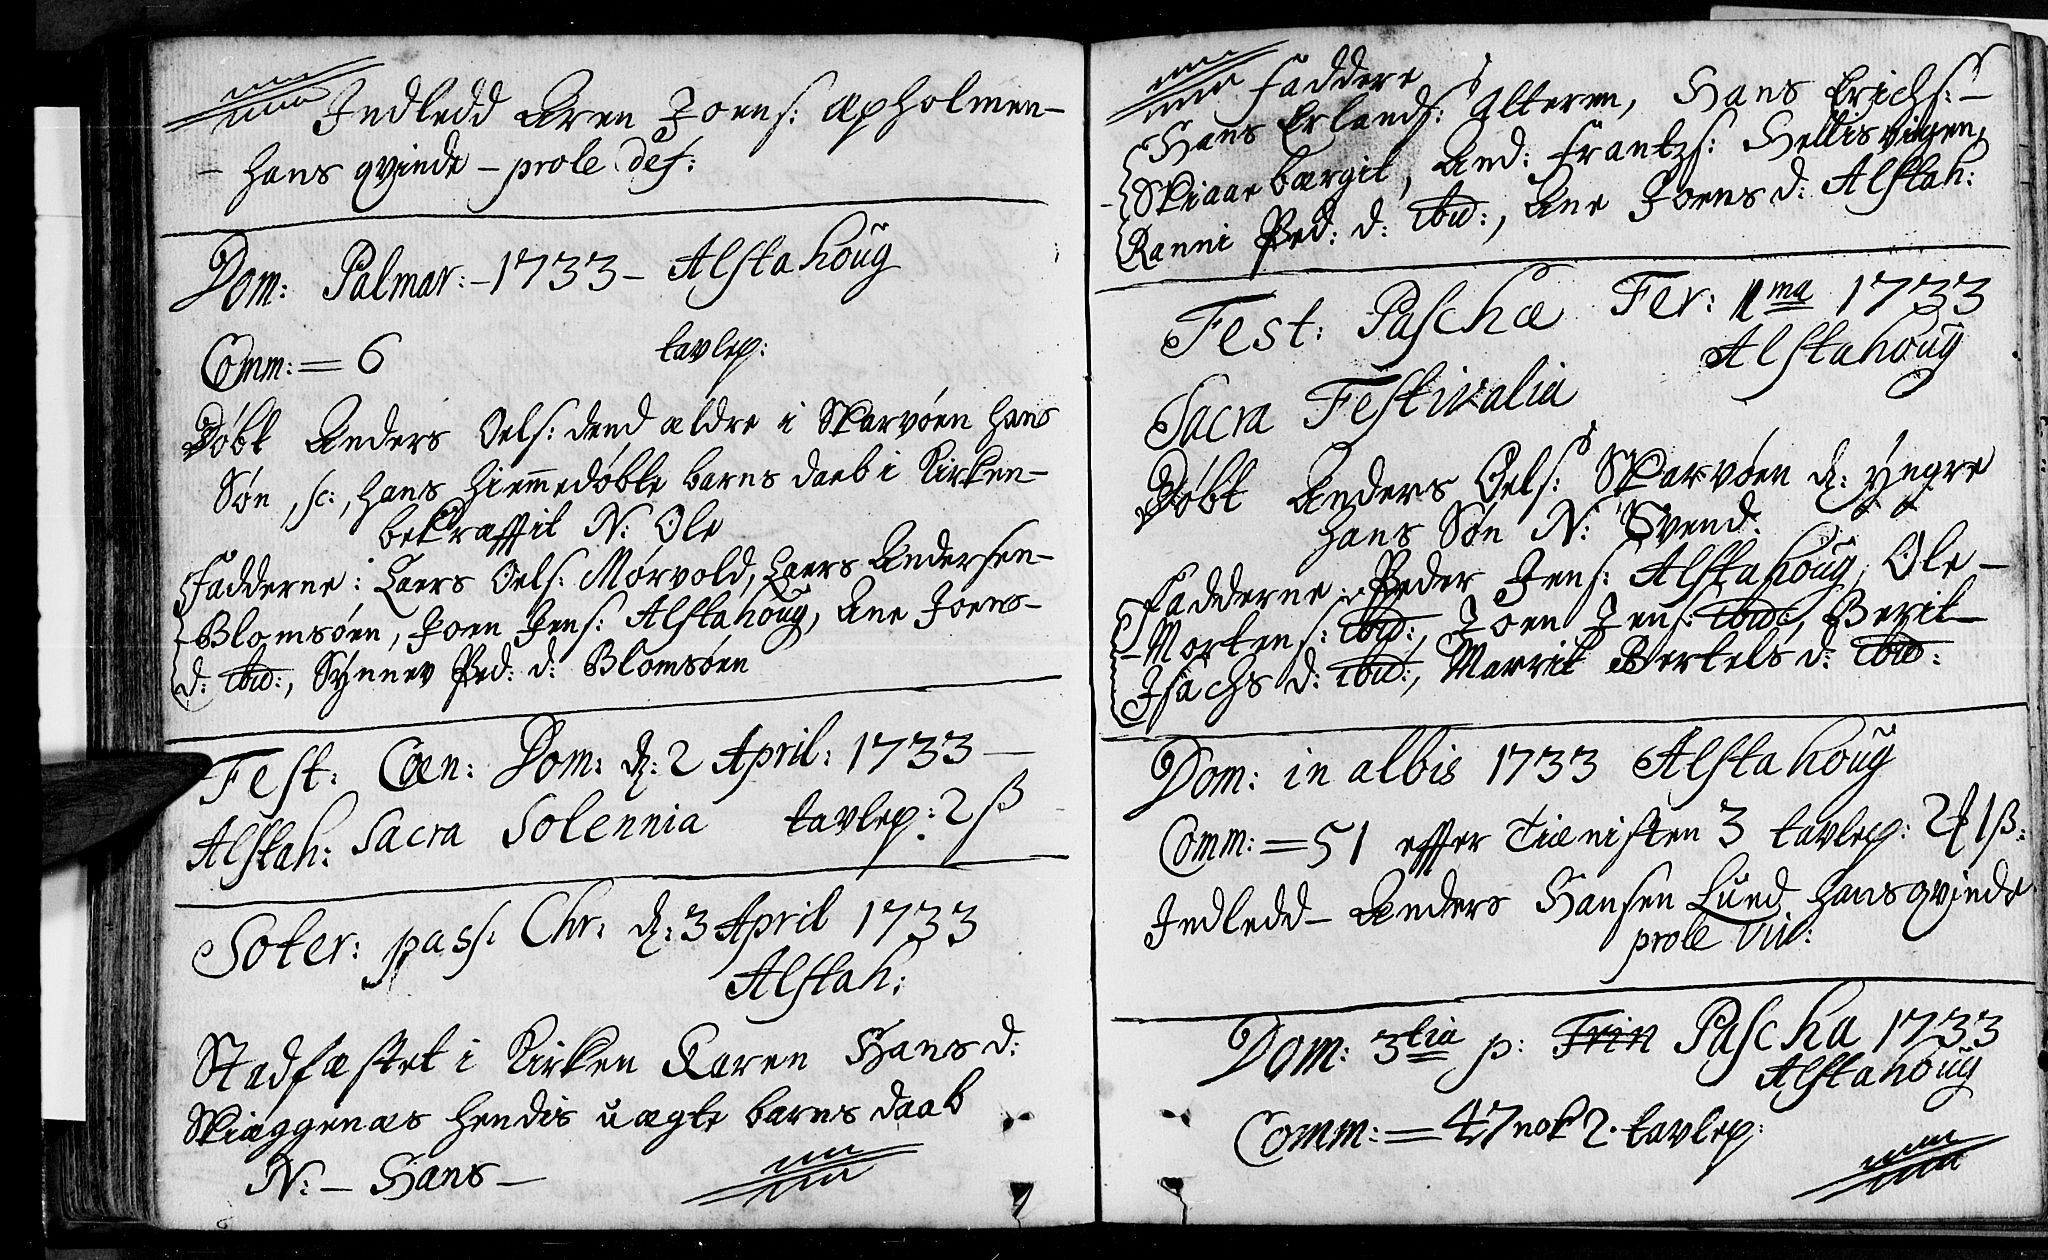 Indledd Aren Joens: Apholmen-
- hans qvinde - prole def:
Dom: Palmar: - 1733 - Alstahoug
Comm: = 6 tavlep:
Døbt Anders Oels: dend ældre i Skarvøen hans
Søn, sc:, hans hiemmedøbte barns daab i Kirken-
bekræfftit N: Ole
Fadderne: Laers Oels: Mørvold, Laers Andersen-
Blomsøen, Joen Jens: Alstahoug, Ane Joens-
d: ibid:, Synnev Ped: d: Blomsøen
Fest: Coen: Dom: d: 2 April: 1733 -
Alstah: Sacra Solennia tavlep: 2 ß
Soter: pass: Chr: d: 3 April 1733
Alstah:
Stadfæstet i Kirken Karen Hans d:
Skiæggenæs hendis uægte barns daab
N: - Hans -
Faddere
Hans Erlands: Alteren, Hans Erichs: -
Skiaarbærgit, And: Frantzs: Hellisvigen,
Ranni Ped: d: ibid:, Ane Joens d: Alstah:
Fest: Paschæ Fer: 1ma 1733
Alstahoug
Sacra Festivalia
Døbt Anders Oels: Skarvøen d: yngre
hans Søn N: Svend.
Fadderne: Peder Jens: Alstahoug, Ole -
Mortens: ibid:, Joen Jens: ibid:, Berit -
Isachs d: ibid:, Marrit Bertels d: ibid:
Dom: in albis 1733 Alstahoug
Comm: = 51 effter Tienisten 3 tavlep: 2 1 ß:
Indledd - Anders Hansen Lund hans qvinde
prole viv:
Dom: 3tia p: Trin Pascha 1733
Alstahoug
Comm: = 47 nok 2. tavlep: